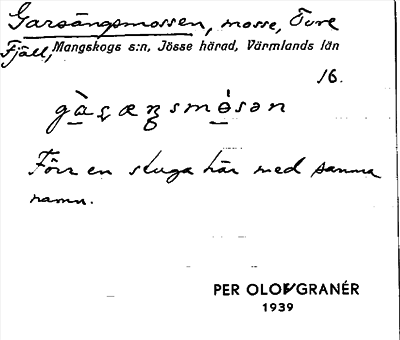 Garsängsmossen, mosse, Ture
Fjäll, Mangskogs s:n, Jösse härad, Värmlands län
16.
gàşæŋsmósən
Förr en stuga här med samma
namn.
PER OLOF GRANÉR
1939